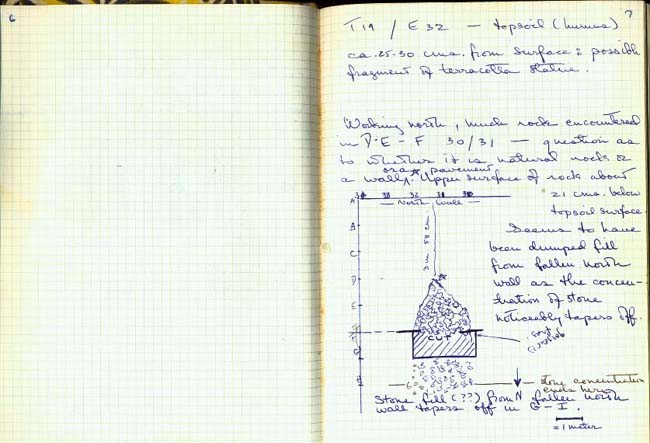 6
7
T 19 / E 32 — topsoil (humus)
ca. 25-30 cms. from surface : possible
fragment of terracotta statue.
Working north, much rock encountered
in D-E-F 30/31 — question as
to whether it is natural rock or
or a pavement
a wall. Upper surface of rock about
21 cms. below
topsoil surface.
32 31 30
North Wall
A
B
C
D
E
3 m 58 cm.
Seems to have
been dumped fill
from fallen north
wall as the concen-
tration of stone
noticeably tapers off.
CUT
G
N
stone concentration
ends here
Stone fill (??) from fallen north
wall tapers off in G-I.
= 1 meter